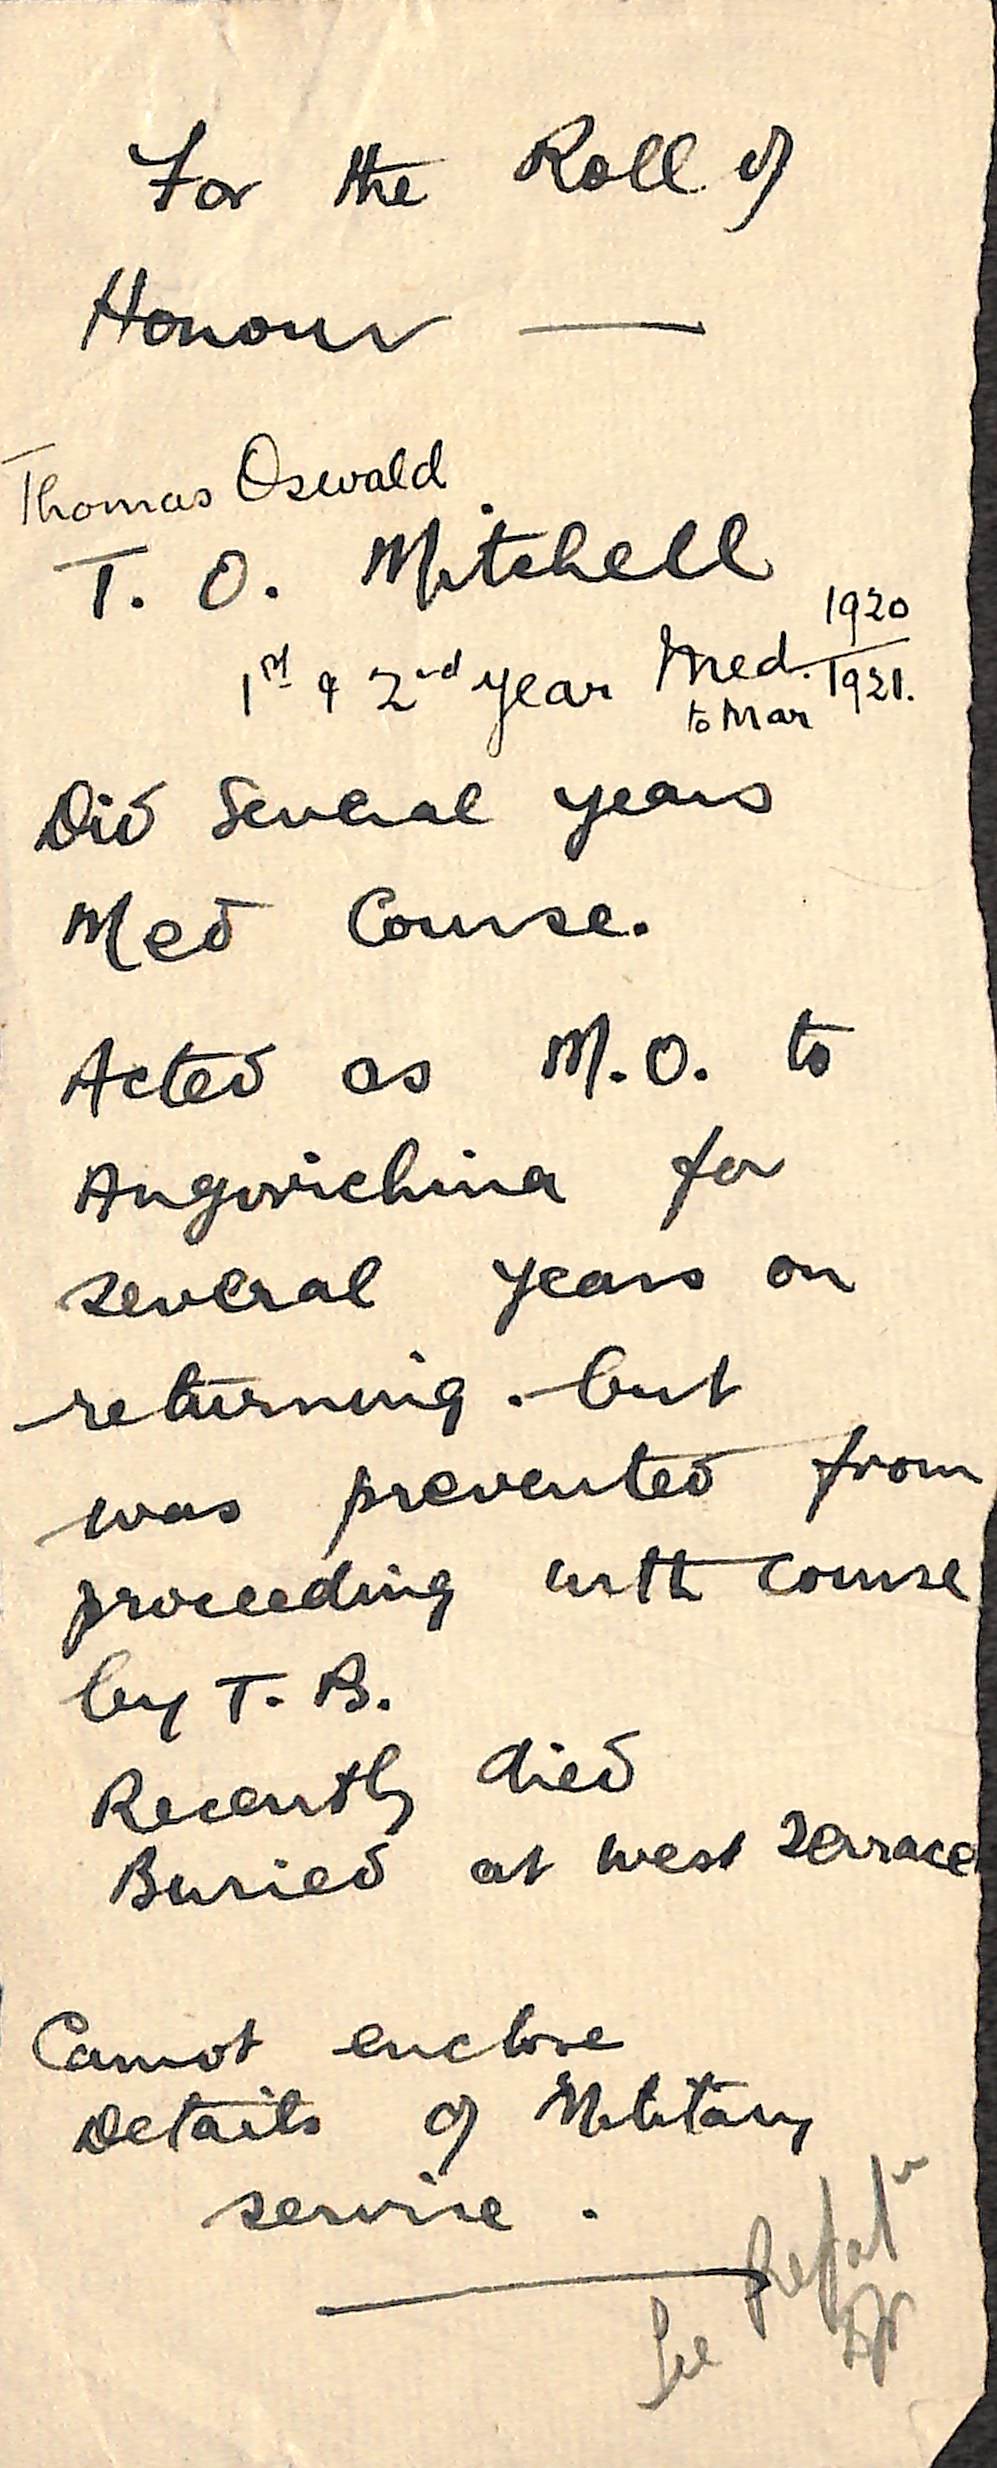 For the Roll of
Honour —
Thomas Oswald
T. O. Mitchell
1st & 2nd year Med. 1920
to Mar 1921.
Did Several years
Med Course.
Acted as M.O. to
Angorichina for
several years on
returning. but
was prevented from
proceeding with course
by T. B.
Recently died
Buried at West Terrace
Cannot enclose
Details of Military
service.
See Repat